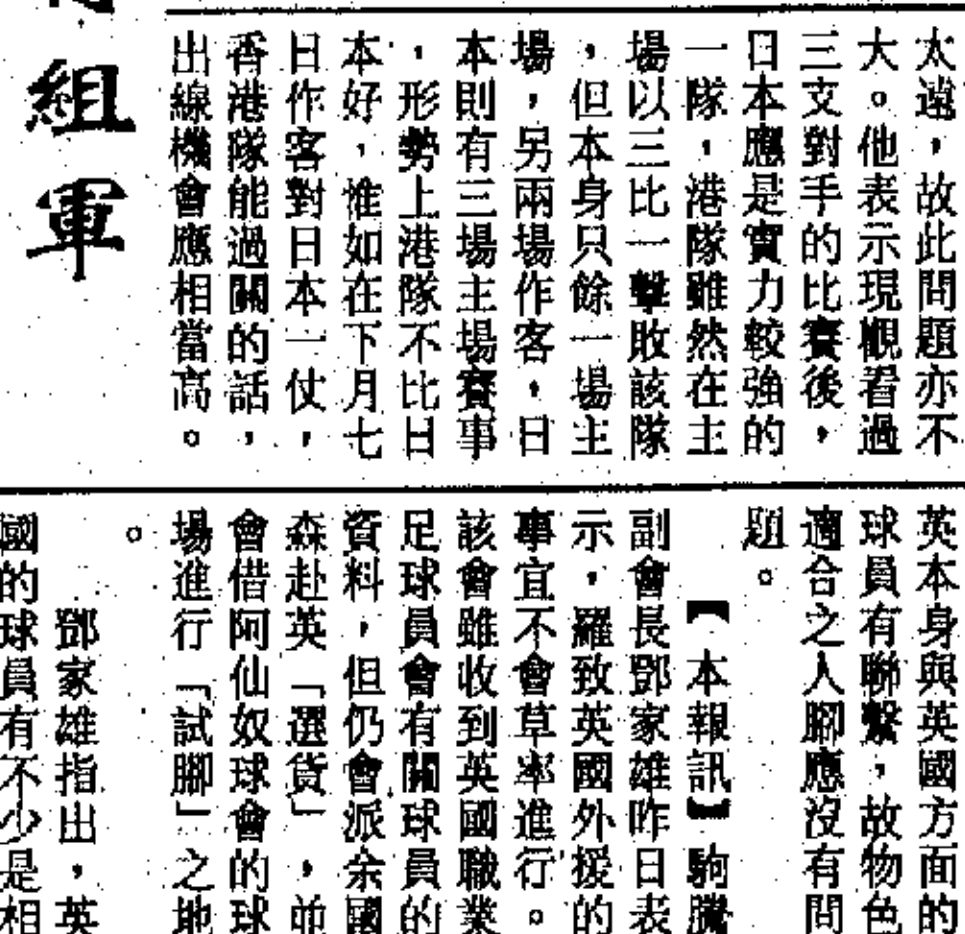 太遠，故此問題亦不
大。他表示現觀看過
三支對手的比賽後，
日本應是實力較強的
一隊，港隊雖然在主
場以三比一擊敗該隊
，但本身只餘一場主
場，另兩場作客，日
本則有三場主場賽事
，形勢上港隊不比日
本好，惟如在下月七
日作客對日本一仗，
香港隊能過關的話，
出線機會應相當高。
組軍
英本身與英國方面的
球員有聯繫，故物色
適合之人腳應沒有問
題。
【本報訊】駒騰
副會長鄧家雄昨日表
示，羅致英國外援的
事宜不會草率進行。
該會雖收到英國職業
足球員會有關球員的
資料，但仍會派余國
森赴英「選貨」，並
會借阿仙奴球會的球
場進行「試腳」之地
。
鄧家雄指出，英
國的球員有不少是相